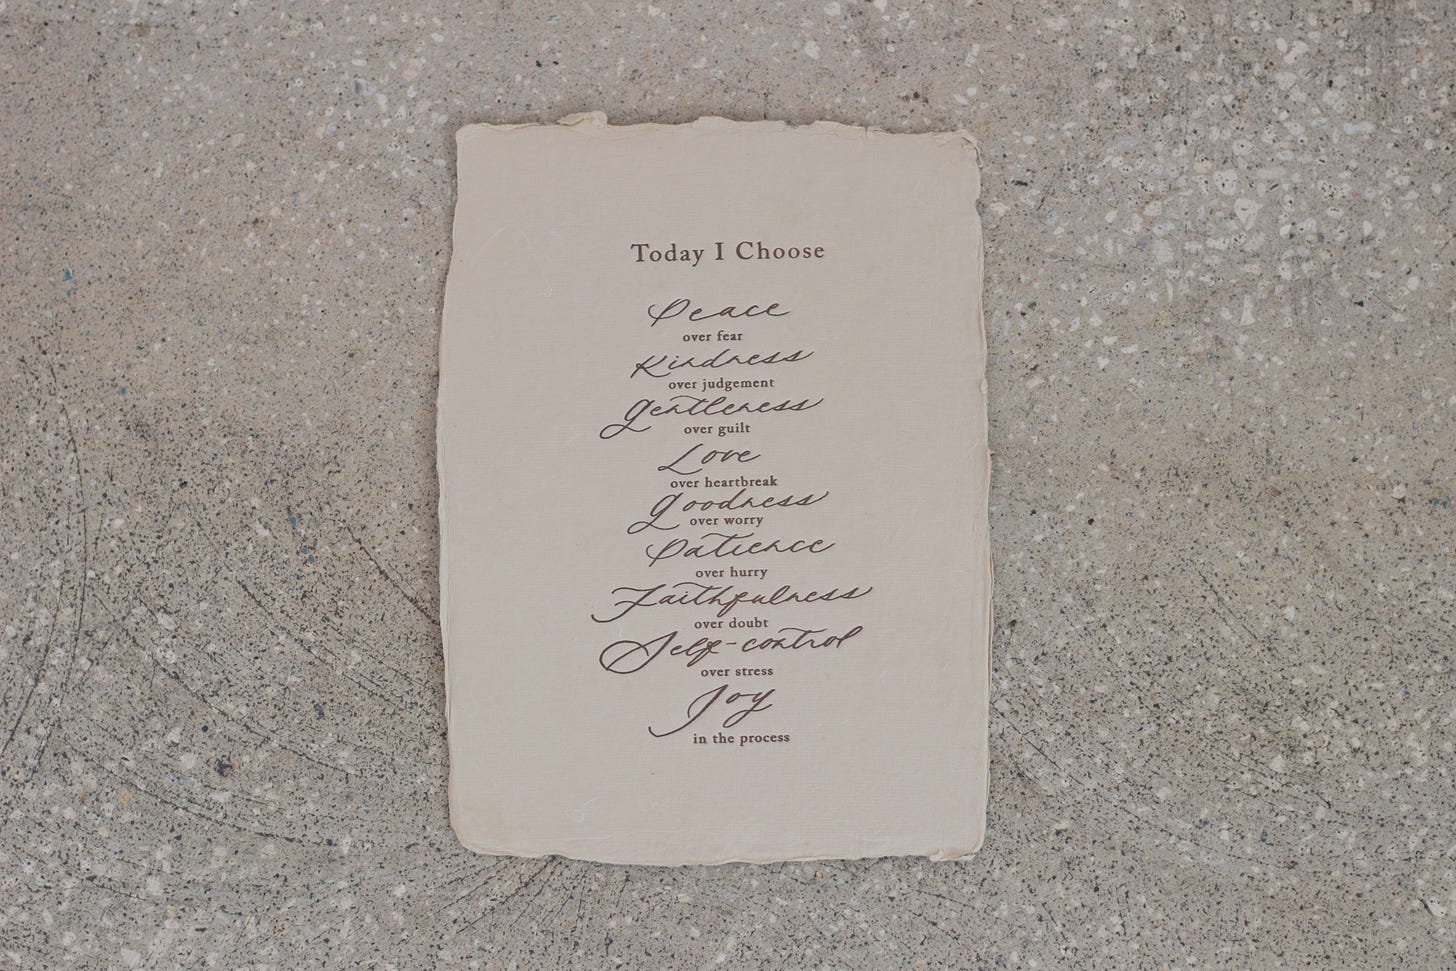 Today I Choose
Peace
over fear
Kindness
over judgement
Gentleness
over guilt
Love
over heartbreak
Goodness
over worry
Patience
over hurry
Faithfulness
over doubt
Self-control
over stress
Joy
in the process